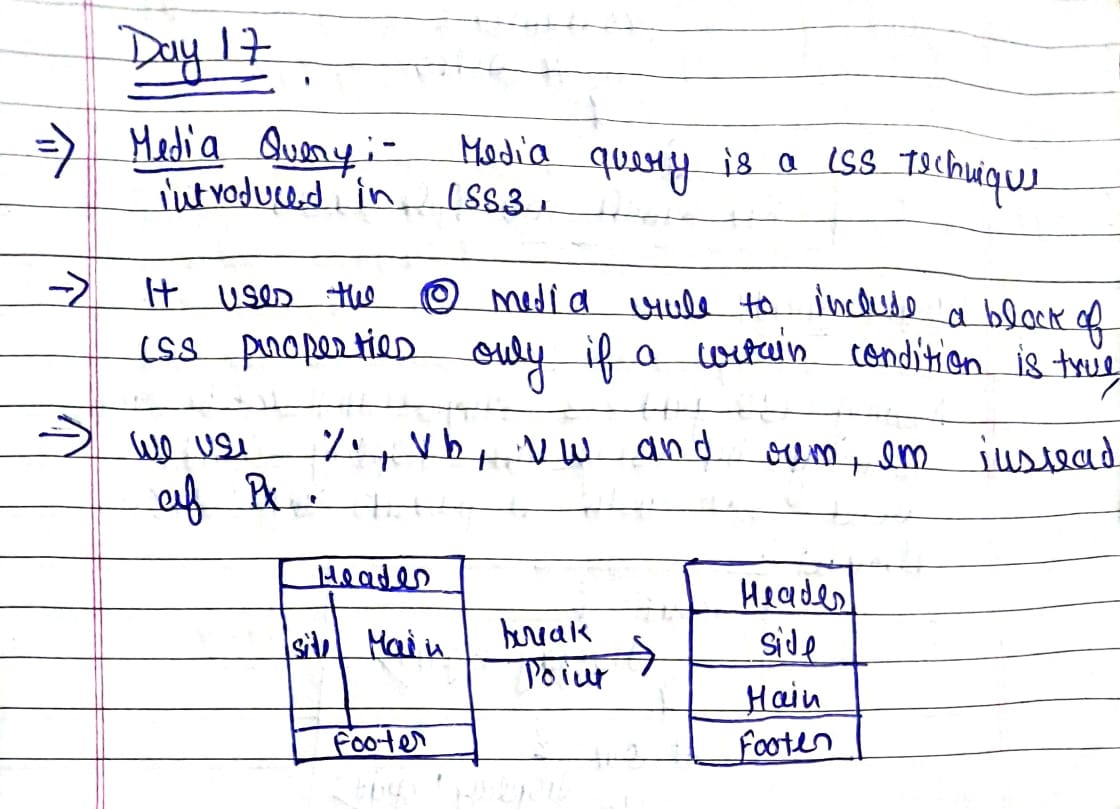 Day 17
⇒ Media Query :- Media query is a CSS Technique
introduced in CSS3.
→ It uses the @ media rule to include a block of
CSS properties only if a certain condition is true,
⇒ We use %, Vh, VW and rem, em instead
of Px.
Header
side Main
Footer
break
Point
Header
Side
Main
Footer